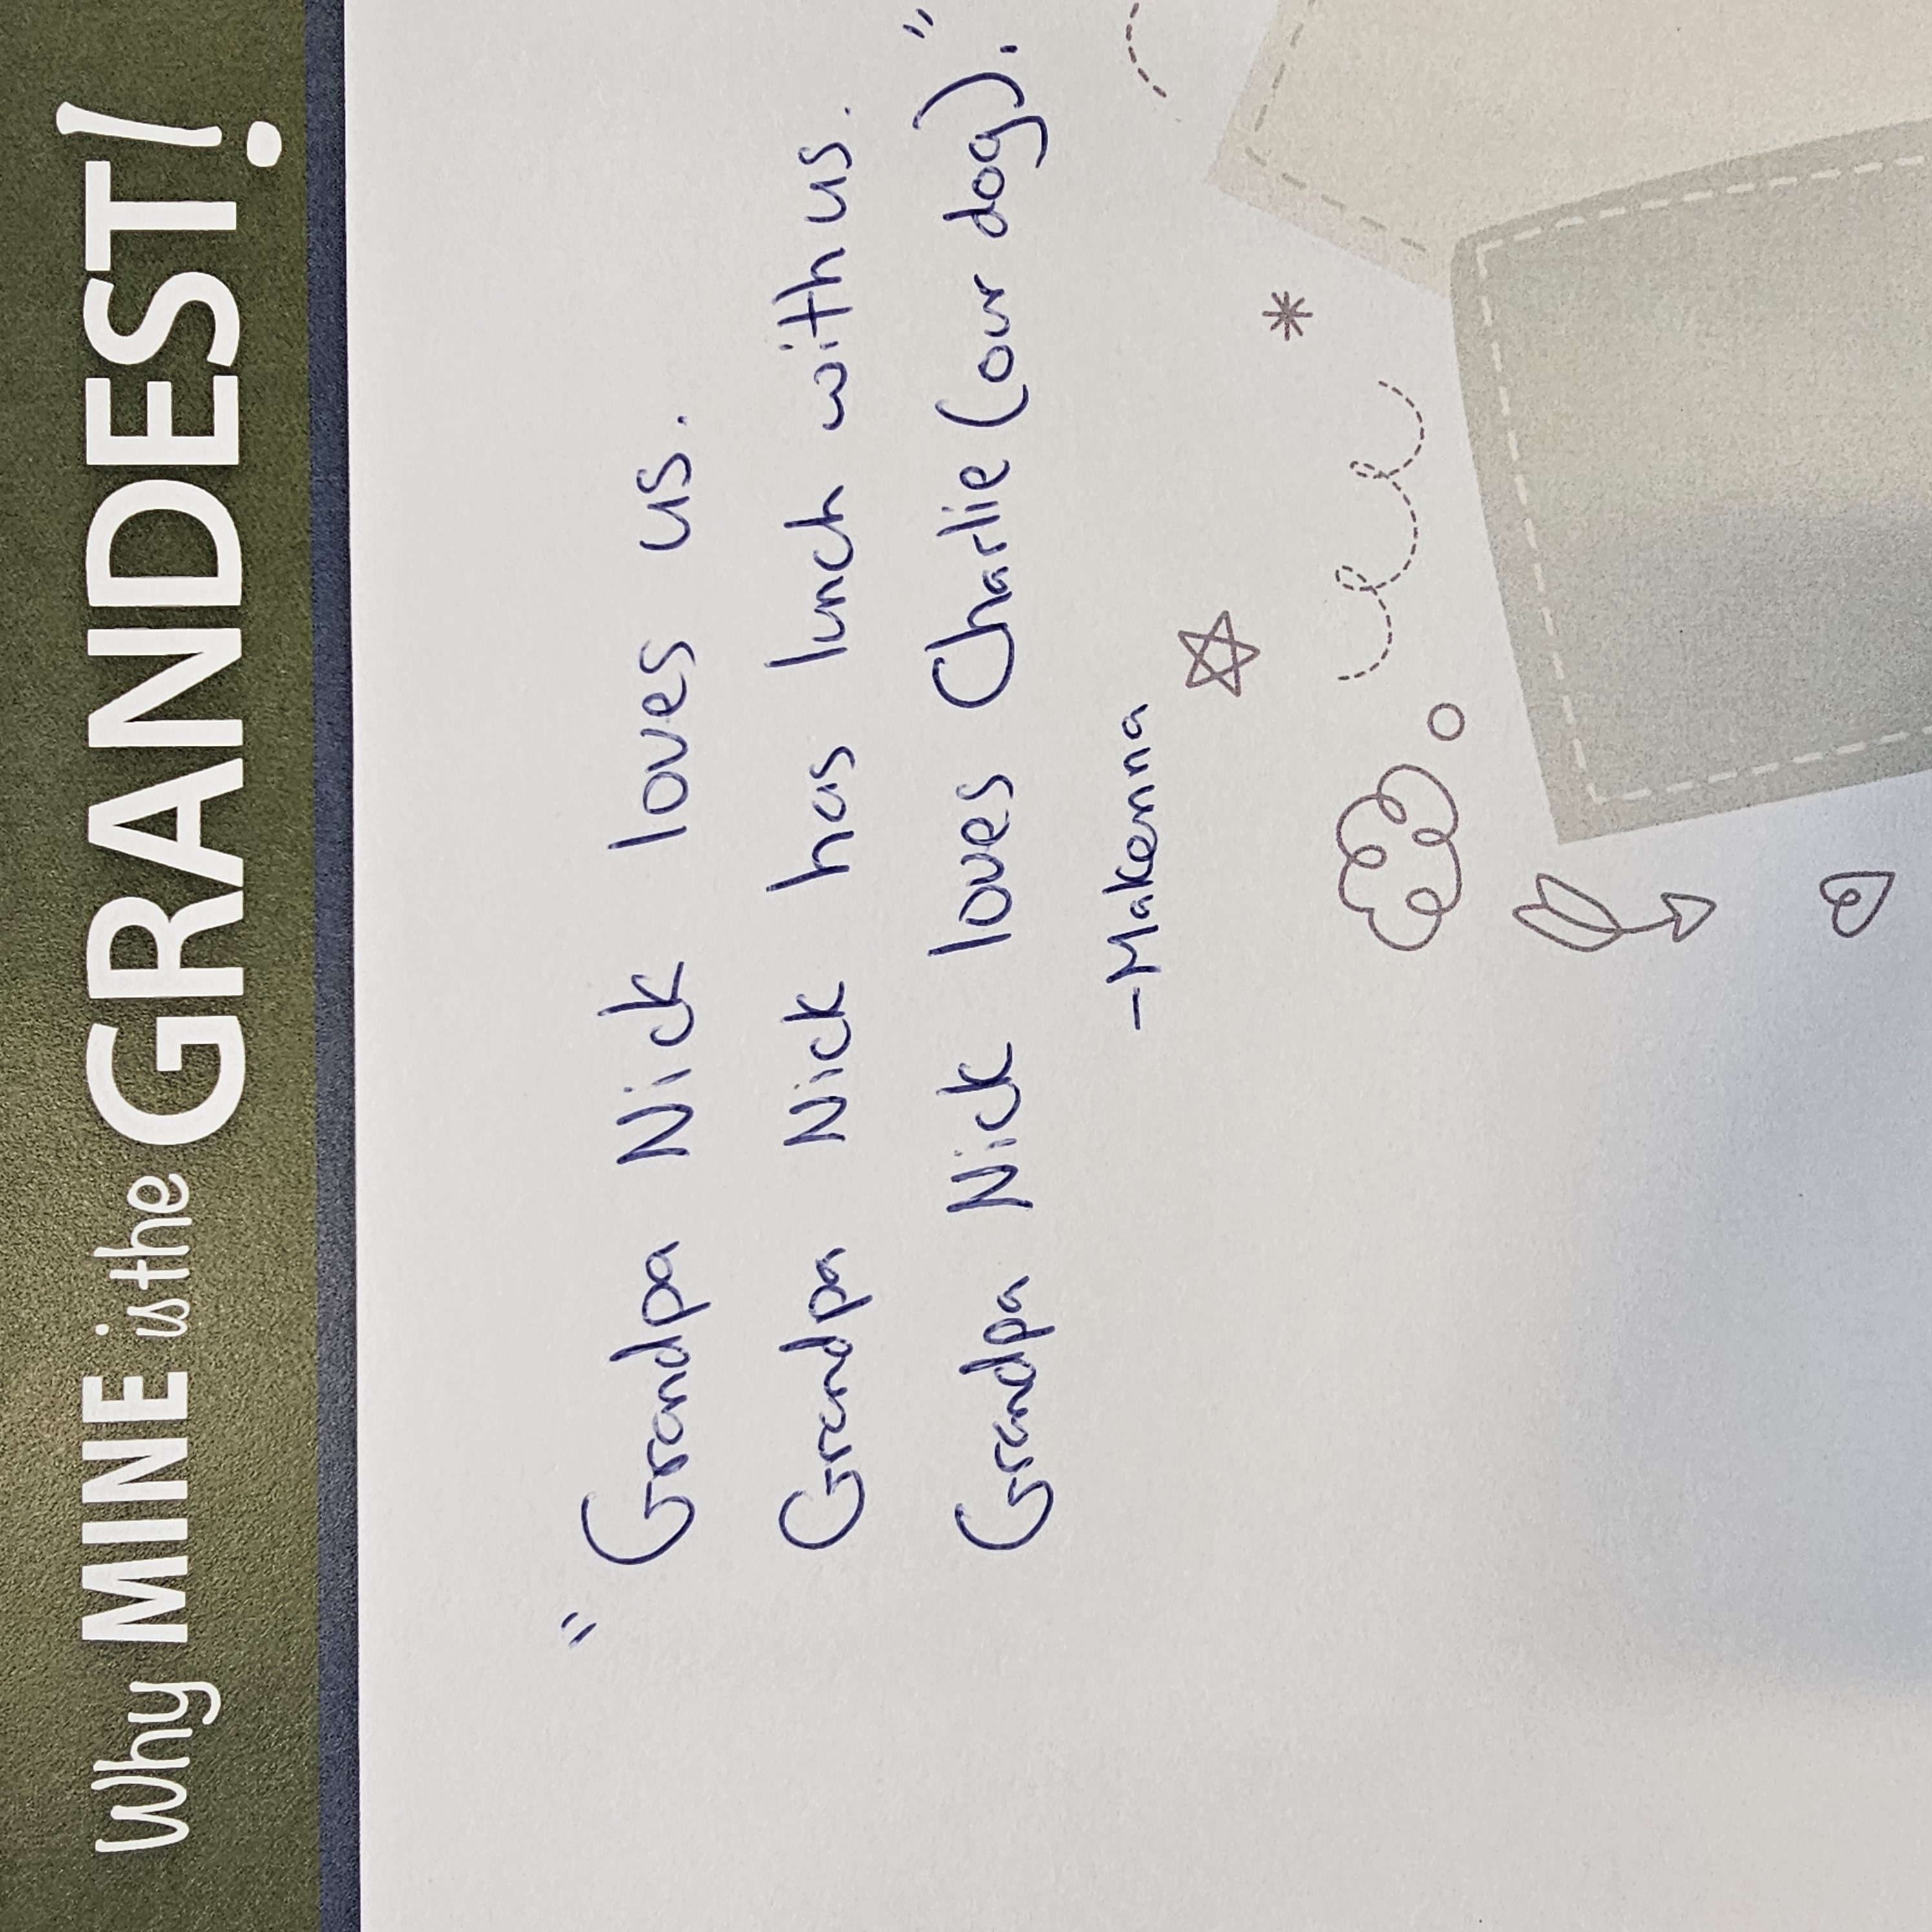 Why MINE is the GRANDEST!
"Grandpa Nick loves us.
Grandpa Nick has lunch with us.
Grandpa Nick loves Charlie (our dog)."
-Makenna